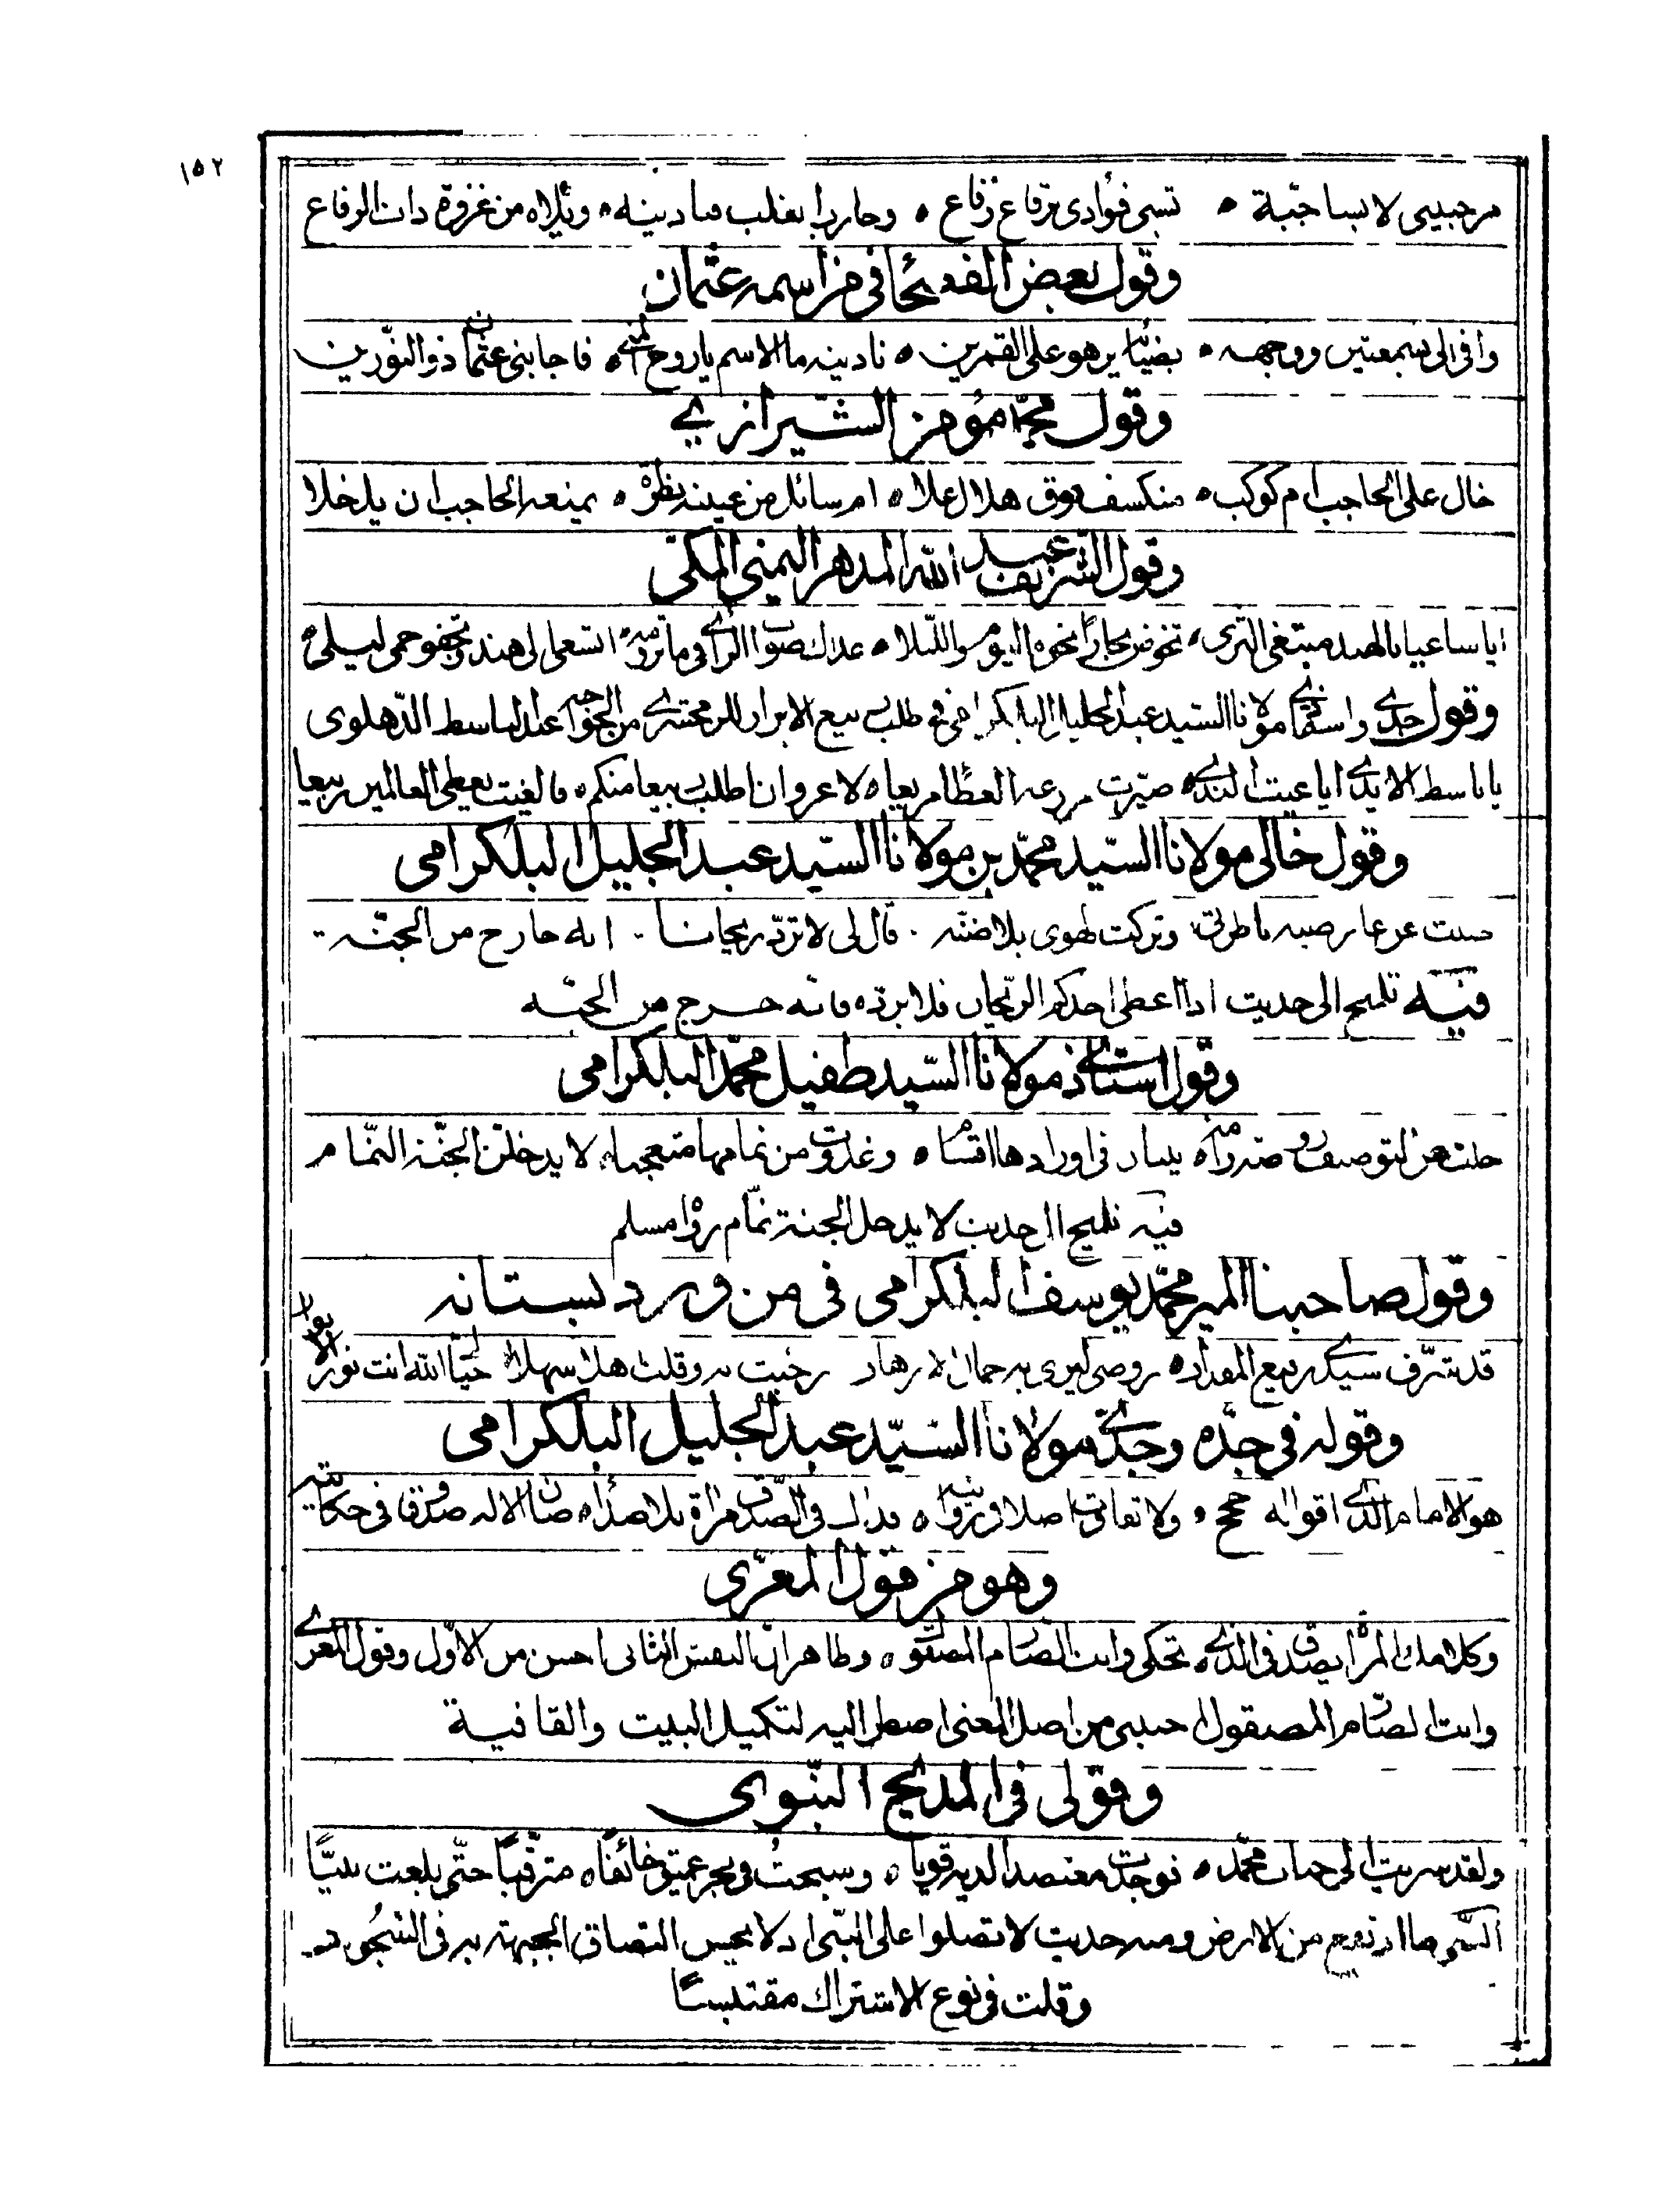 ١٥٢
مر حبيبى لابسا جبّة ٥ تسبى فؤادى برقاع رقاع ٥ وحار باب لقلب ٥ ويلاه من غزوة ذات الرقاع
وقول بعض الفصحا فى من اسمه عثمان
وافى الى بشمعتين ووجهه ٥ بضيائه يزهو على القمرين ٥ ناديته ما الاسم يا روح المنى ٥ فاجابنى عثمان ذو النّورين
وقول محمد مؤمن الشيرازي
خال على الحاجب ام كوكب ٥ منكسف فوق هلال علا ٥ ام سائل من عينه نظرة ٥ يمنعه الحاجب ان يدخلا
وقول الشريف عبد الله المدهر اليمنى المكى
ايا ساعيا بالهند مبتغى الثرى ٥ تخوض بحارا نحوه اليوم والليلا ٥ عداك صواب الراي فى ما ترومه ٥ اتسعى لى هند وتجفو حمى ليلى
وقول جدي واستاذي مولانا السّيد عبد الجليل البلكرامى فى طلب ربيع الابرار للزمخشري من الخواجه عبد الباسط الدّهلوى
يا باسط الايدي ايا غيث الندي ٥ صيّرت مرعى العظام ربيعا ٥ لا غرو ان اطلب ربيعا منكم ٥ فالغيث يعطى العالمين ربيعا
وقول خالى مولانا السّيد محمّد بن مولانا السّيد عبد الجليل البلكرامى
وتركت الهوى بلا ضنّه . قال لى لا تردّ ريحانا . انه خارج من الجنّه
فيه تلميح الى حديث اذا اعطى احدكم الريحان فلا يرده فانه خرج من الجنّه
وقول استاذي مولانا السّيد طفيل محمّد البلكرامى
وغدوت من نمامها متعجبا ٥ لا يدخلنّ الجنّة النّمام
فيه تلميح الى حديث لا يدخل الجنة نمّام رواه مسلم
وقول صاحبنا المير محمّد يوسف البلكرامى فى من ورد بستانه
قد تشرّف سيدي ربيع ٥ روضى ليرى به جمال الازهار رحّبت به وقلت اهلا سهلا ٥ حيّاك الله انت نور الانوار
وقوله فى جدّه وجدّي مولانا السّيد عبد الجليل البلكرامى
هو الامام الذي اقواله حجج ٥ ولا تفاوت اصلا فى روايته ٥ فذاك فى الصّدق مراة بلا صدأ ٥ صان الاله صدوقا فى حكايته
وهو من قول المعرّى
وكالهلك المرأة يصدق فى الذي ٥ تحكى وانت الصارم المصقول ٥ وظاهر ان النقش الثانى احسن من الاوّل وقول المعري
وانت الصّارم المصقول اجنبى من اصل المعنى اضطر اليه لتكميل البيت والقافية
وقولى فى المديح النّبوى
ولقد سريت الى جناب محمّد ٥ فوجدت معتصدا لديه قويا ٥ وسبحت فى بحر عميق خائفا ٥ مترقّبا حتّى بلغت نبيّا
النّبى ما ارتفع من الارض ومنه حديث لا تصلوا على النّبى اذ لا يحسن التصاق الجبهة به فى السّجود
وقلت فى نوع الاشتراك مقتبسًا